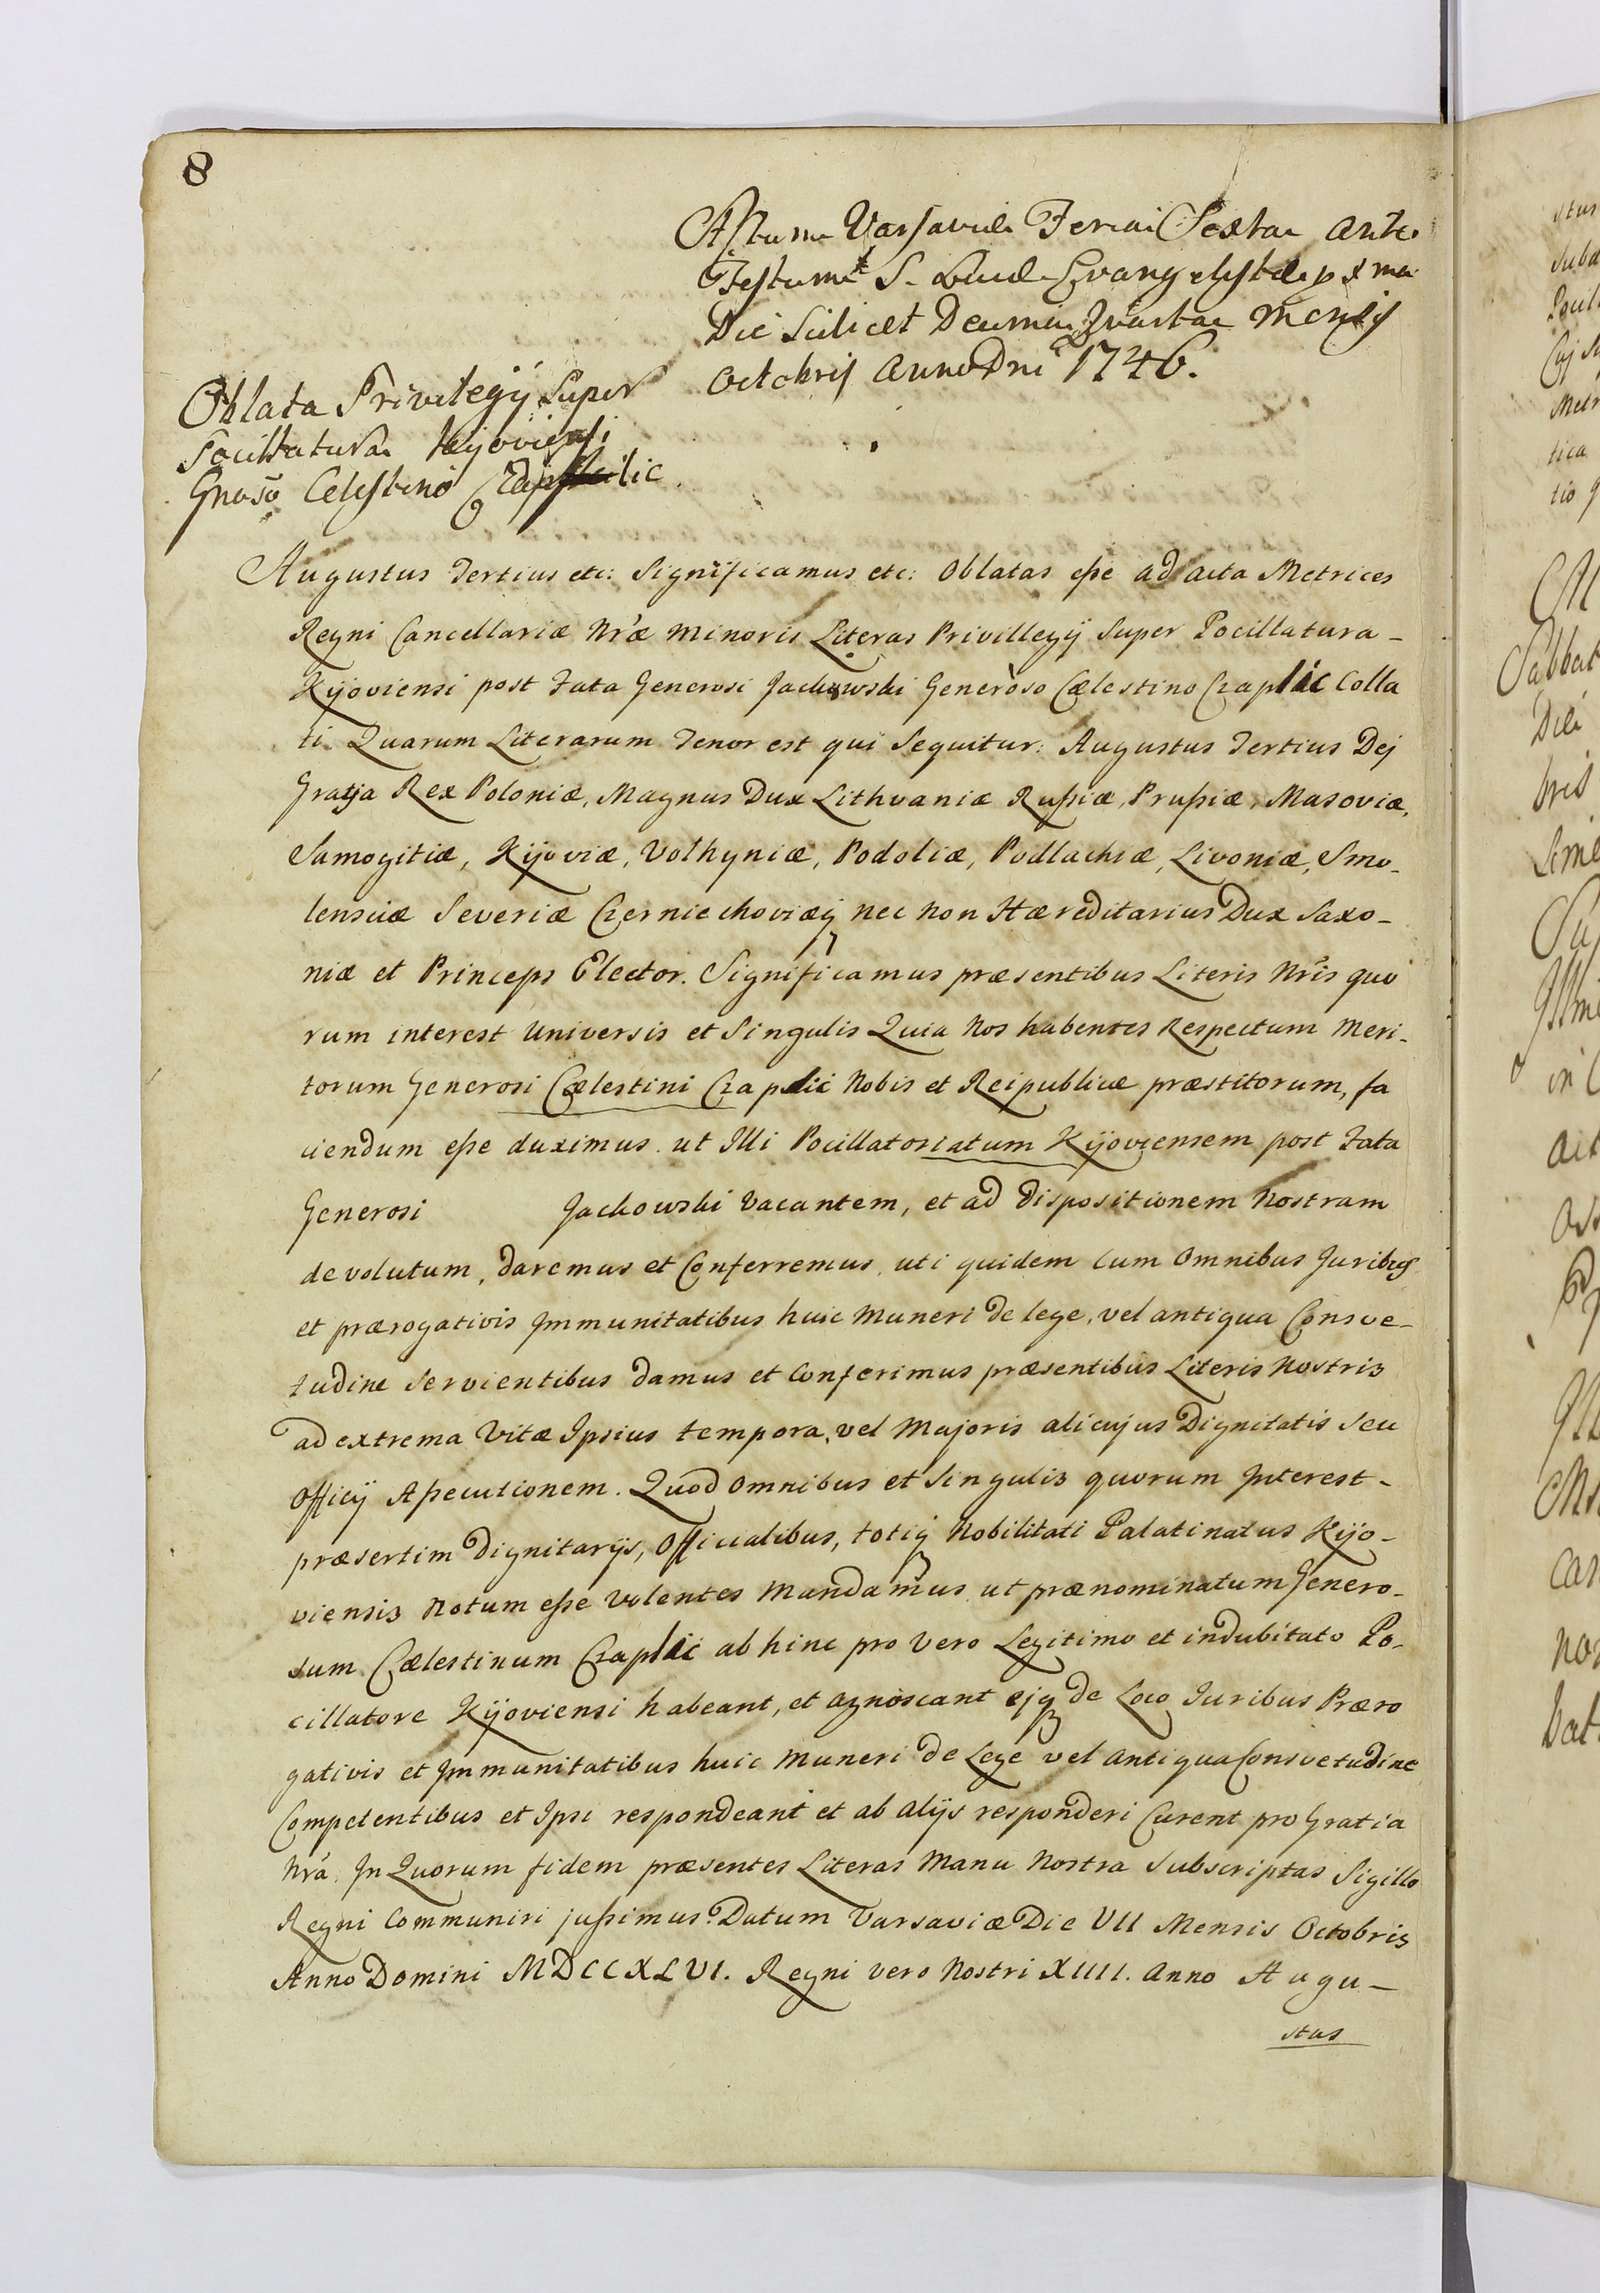 8
Actum Varsaviæ Feria Sexta ante
Festum S. Lucæ Evangelistæ pxma
Die Scilicet Decima Quarta Mensis
Octobris Anno Dni 1746.
Oblata Privilegij Super
Pocillatura Kijoviensi
Gnoso Celestino Czaplic
Augustus Tertius etc: Significamus etc: Oblatas eße ad Acta Metrices
Regni Cancellariæ Nr̃æ Minoris Literas Privillegij Super Pocillatura-
Kijoviensi post Fata Generosi Jackowski Generoso Cælestino Czaplic Colla
ti. Quarum Literarum Tenor est qui Sequitur: Augustus Tertius Dej
Gratja Rex Poloniæ, Magnus Dux Lithvaniæ Rußiæ, Prußiæ, Masoviæ,
Samogitiæ, Kijoviæ, Volhyniæ, Podoliæ, Podlachiæ, Livoniæ, Smo-
lensciæ Severiæ Czerniechoviæq nec non Hæreditarius Dux Saxo-
niæ et Princeps Elector. Significamus præsentibus Literis Nr̃is quo
rum interest Universis et Singulis Quia Nos habentes Respectum Meri-
torum Generosi Cælestini Czaplic Nobis et Reipublicæ præstitorum, fa
ciendum eße duximus ut Illi Pocillatoriatum Kijoviensem post Fata
Generosi Jackowski Vacantem, et ad Dispositionem Nostram
devolutum, daremus et Conferremus, uti quidem Cum Omnibus Juribus
et prærogativis Immunitatibus huic Muneri de lege, vel antiqua Consve-
tudine Servientibus damus et Conferimus præsentibus Literis Nostris
ad extrema Vitæ Ipsius tempora, vel Majoris alicujus Dignitatis Seu
Officij Aßecutionem. Quod Omnibus et Singulis quorum Interest-
præsertim Dignitarijs, Officialibus, totiq Nobilitati Palatinatus Kijo-
viensis Notum eße Volentes Mandamus ut prænominatum Genero-
sum Cælestinum Czaplic ab hinc pro Vero Legitimo et indubitato Po-
cillatore Kijoviensi habeant, et agnoscant ejq de Loco Juribus Præro
gativis et Immunitatibus huic Muneri de Lege vel Antiqua Consvetudine
Competentibus et Ipsi respondeant et ab alijs responderi Curent pro Gratia
Nr̃a. In Quorum fidem præsentes Literas Manu Nostra Subscriptas Sigillo
Regni Communiri jußimus. Datum Varsaviæ Die VII Mensis Octobris
Anno Domini MDCCXLVI. Regni vero Nostri XIIII. Anno Augu-
stus